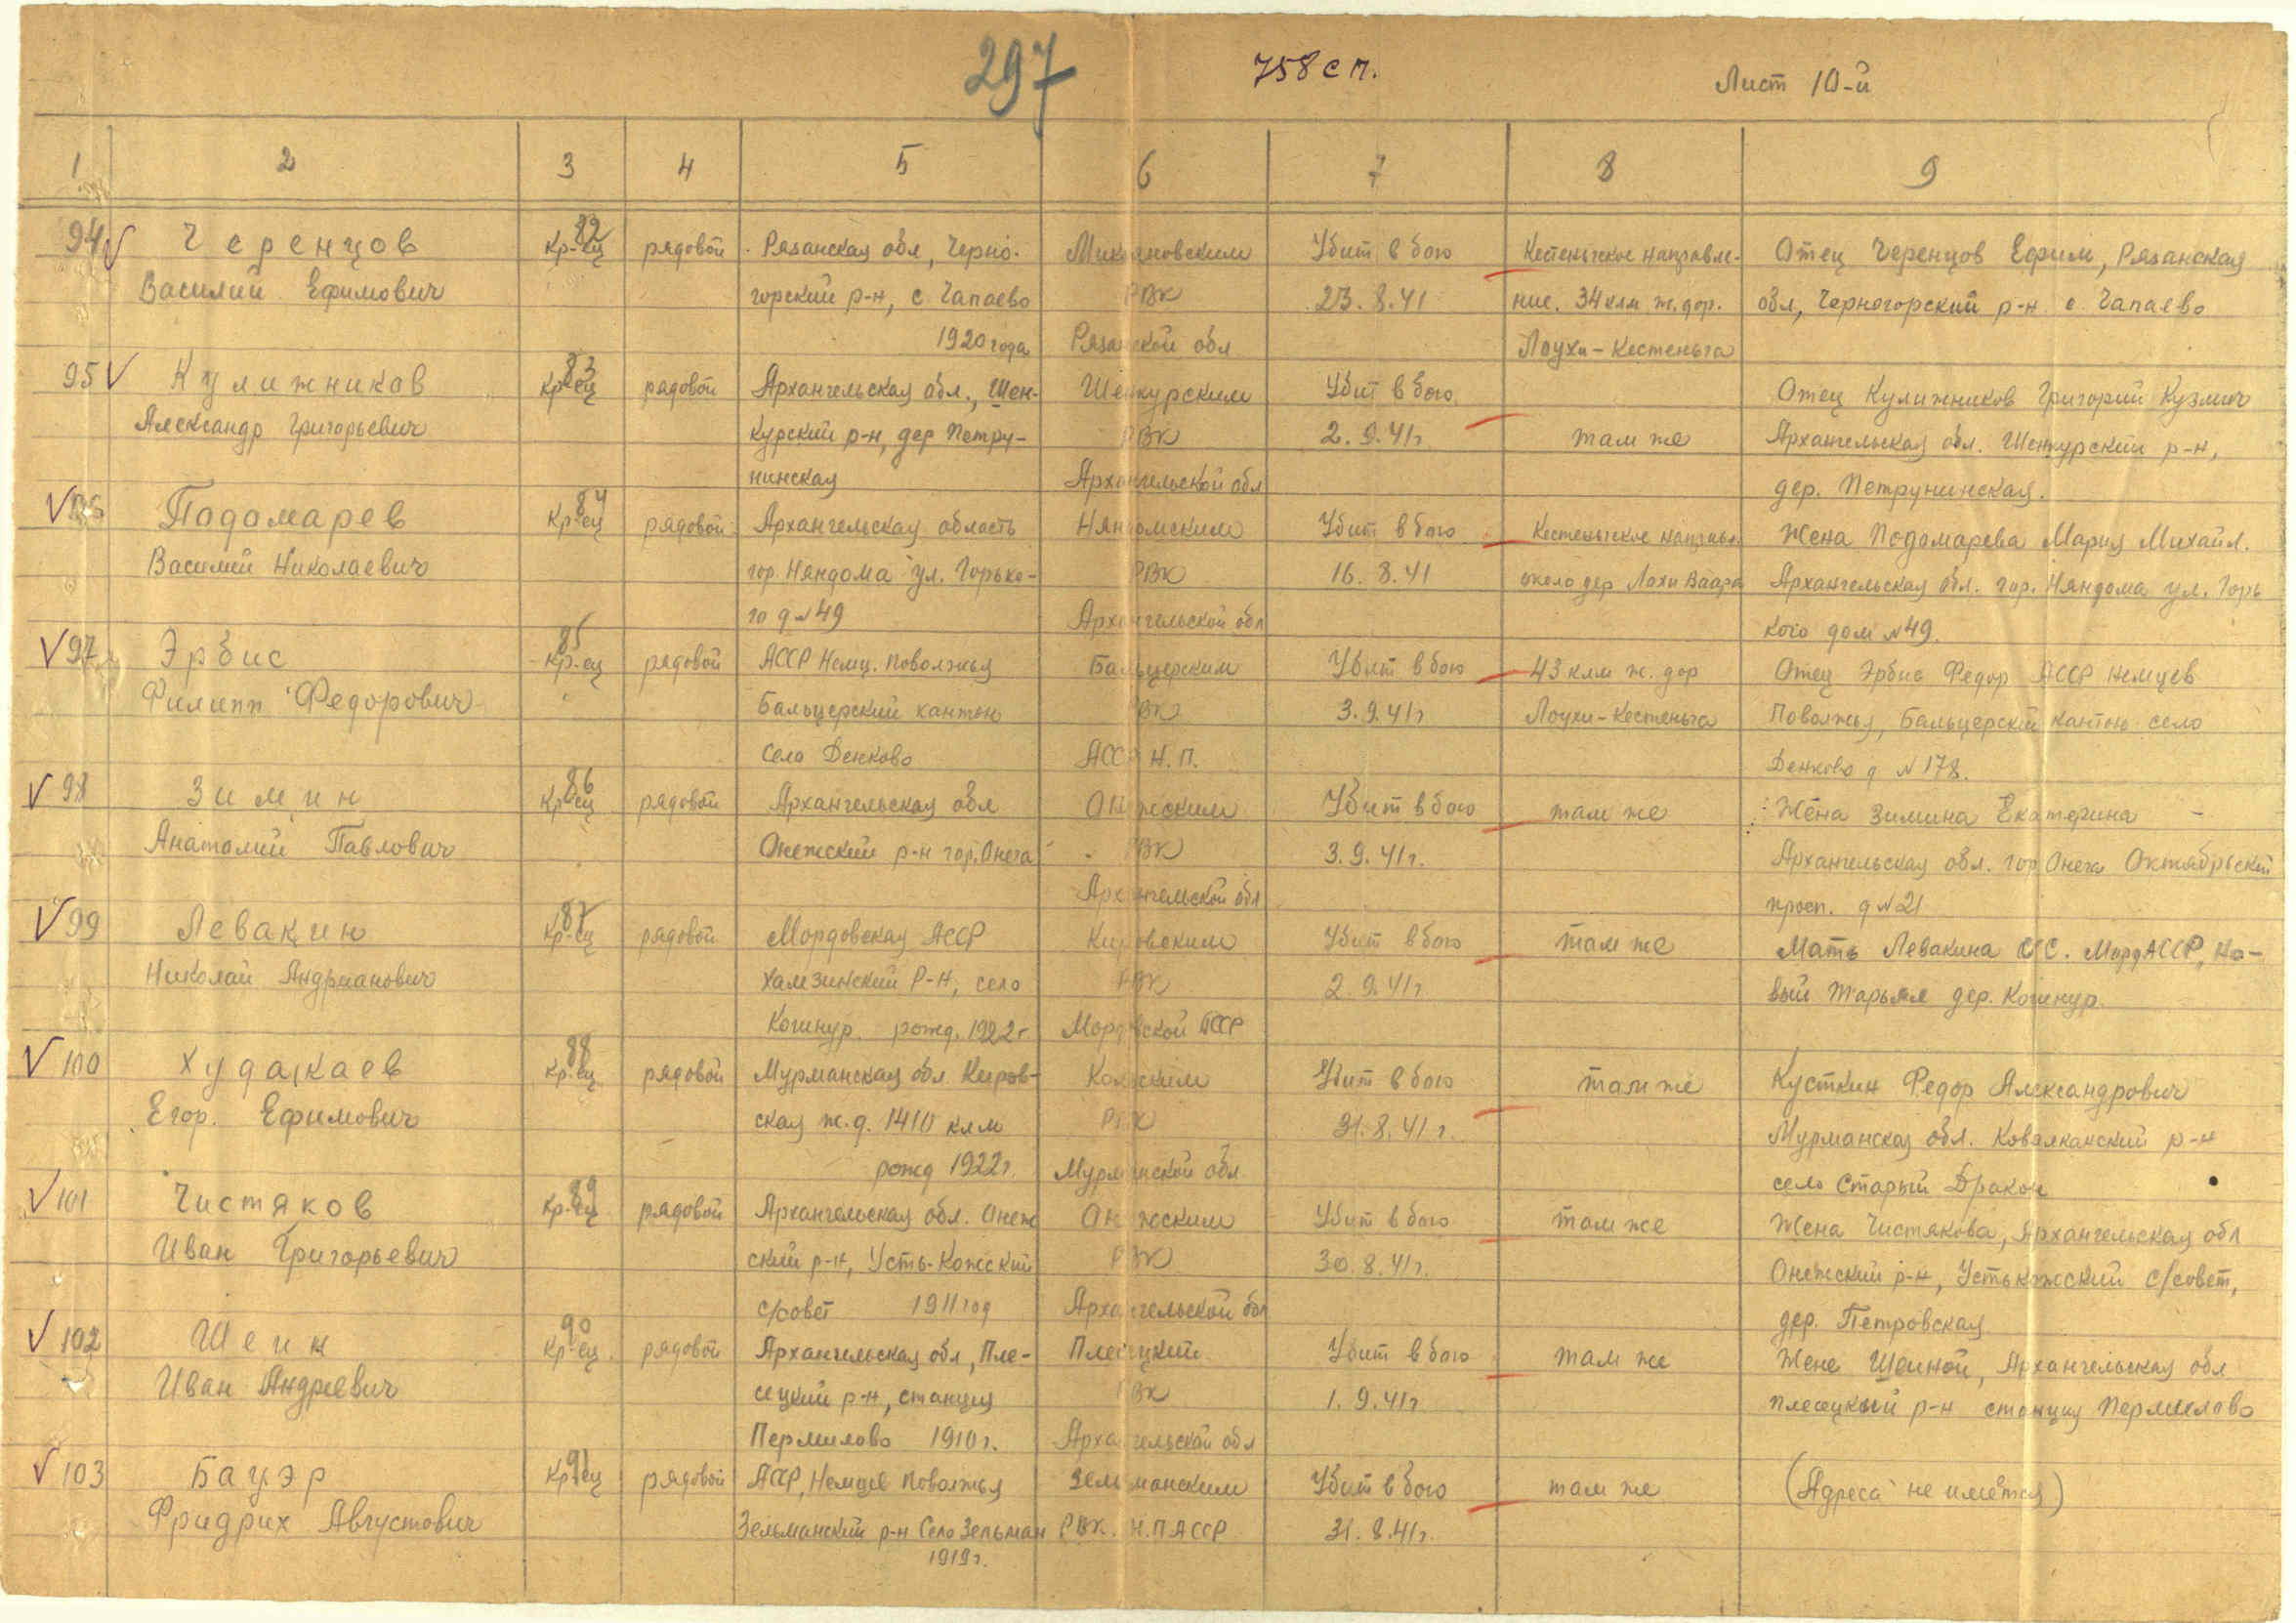 297
758 сп.
Лист 10-й
1 2 3 4 5 6 7 8 9
94 Черенцов Кр-ец 82 рядовой Рязанская обл, Черно- Микояновским Убит в бою Кестеньгское направле- Отец Черенцов Ефим, Рязанская
Василий Ефимович горский р-н, с. Чапаево РВК 23.8.41 ние. 34 клм ж.дор. обл, Черногорский р-н с. Чапаево
1920 года Рязанской обл Лоухи-Кестеньга
95 Кулижников Кр-ец 83 рядовой Архангельская обл., Шен- Шенкурским Убит в бою Отец Кулижников Григорий Кузмич
Александр Григорьевич курский р-н, дер Петру- РВК 2.9.41г там же Архангельская обл. Шенкурский р-н,
нинская Архангельской обл дер. Петрунинская.
96 Подомарев Кр-ец 84 рядовой Архангельская область Няндомским Убит в бою Кестеньгское направл Жена Подомарева Мария Михайл.
Василий Николаевич гор. Няндома ул. Горько- РВК 16.8.41 около дер Лохи Ваара Архангельская обл. гор. Няндома ул. Горь
го д №49 Архангельской обл кого дом №49.
97 Эрбис Кр-ец 85 рядовой АССР Немц. Поволжья Бальцерским Убит в бою 43 клм ж. дор Отец Эрбис Федор АССР Немцев
Филипп Федорович Бальцерский кантон РВК 3.9.41г Лоухи-Кестеньга Поволжья, Бальцерский кантон село
село Денково АССР Н.П. Денково д №178.
98 Зимин Кр-ец 86 рядовой Архангельская обл Онежским Убит в бою там же Жена Зимина Екатерина -
Анатолий Павлович Онежский р-н гор. Онега РВК 3.9.41г. Архангельская обл. гор Онега Октябрьский
Архангельской обл просп. д №21
99 Левакин Кр-ец 87 рядовой Мордовская АССР Кировским Убит в бою там же Мать Левакина С.С. МордАССР, Но-
Николай Андрианович Хамзинский Р-Н, село РВК 2.9.41г вый дер. Когинур.
Когинур. рожд. 1922г Мордовской АССР
100 Худайкаев Кр-ец 88 рядовой Мурманская обл Киров- Кольским Убит в бою там же Кусткин Федор Александрович
Егор. Ефимович ская ж.д. 1410 клм РВК 31.8.41г. Мурманская обл. Ковалканский р-н
рожд 1922г. Мурманской обл. село Старый Дракон
101 Чистяков Кр-ец 89 рядовой Архангельская обл. Онеж Онежским Убит в бою там же Жена Чистякова, Архангельская обл
Иван Григорьевич ский р-н, Усть-Кожский РВК 30.8.41г. Онежский р-н, Устькожский с/совет,
с/совет 1911 год Архангельской обл дер. Петровская
102 Шеин Кр-ец 90 рядовой Архангельская обл, Пле- Плесецким Убит в бою там же Жене Шеиной, Архангельская обл
Иван Андреевич сецкий р-н, станция РВК 1.9.41г Плесецкый р-н станция Пермилово
Пермилово 1910г. Архангельской обл
103 Бауэр Кр-ец 91 рядовой АССР, Немцев Поволжья Зельманским Убит в бою там же (Адреса не имеется)
Фридрих Августович Зельманский р-н Село Зельман РВК. Н.П АССР 31.8.41г.
1919г.